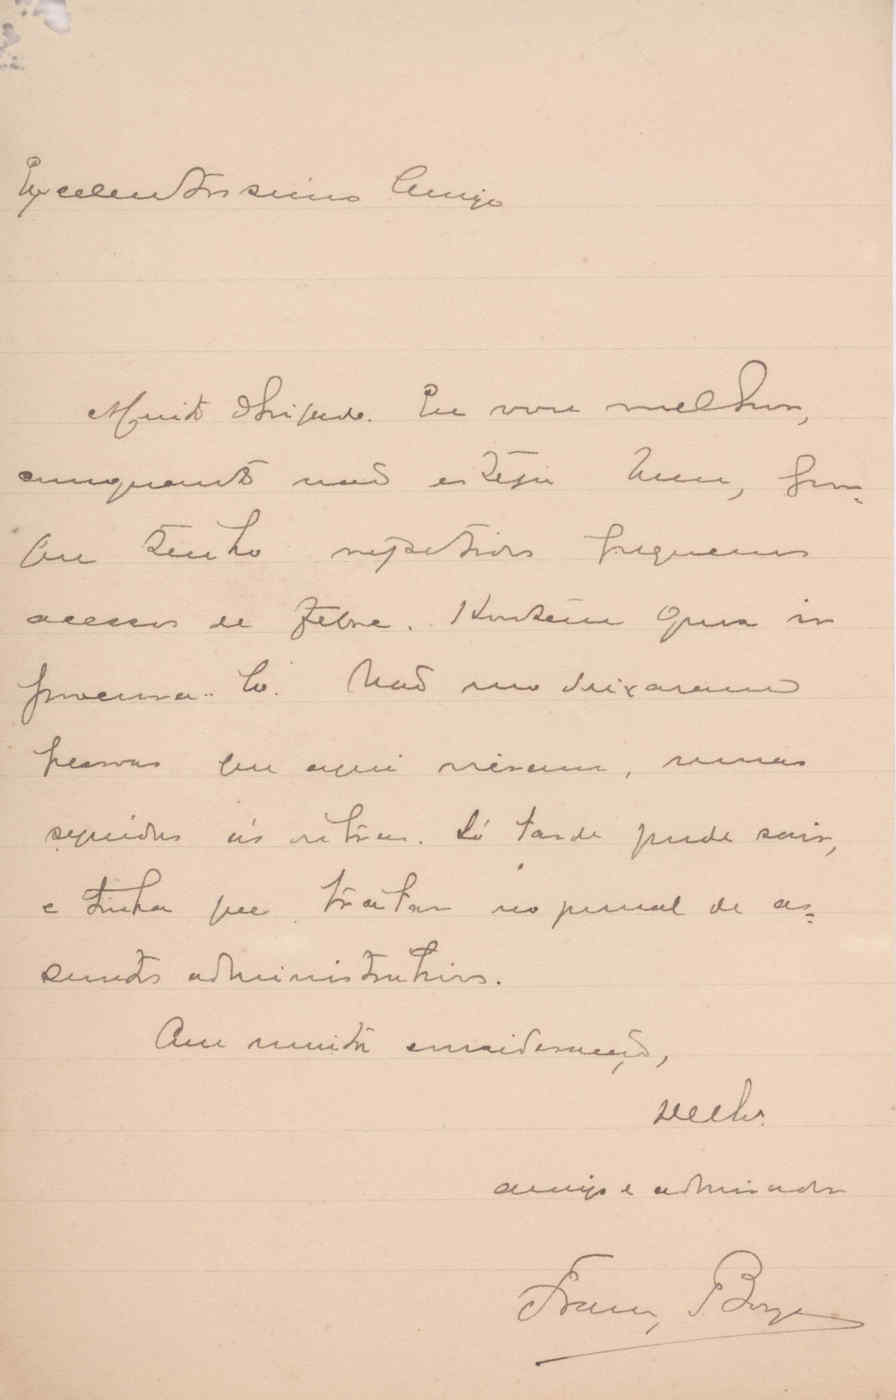 Excelentissimo Amigo
Muito Obrigado. Eu vou melhor,
emquanto não esteja bom, por-
que tenho repetidos pequenos
acessos de febre. Hontem quiz ir
procura-lo. Não me deixaram
pessoas que aqui vieram, umas
seguidas ás outras. Só tarde pude sair,
e tinha que tratar no jornal de as-
suntos administrativos.
Com muita consideração,
velho
amigo e admirador
França Borges